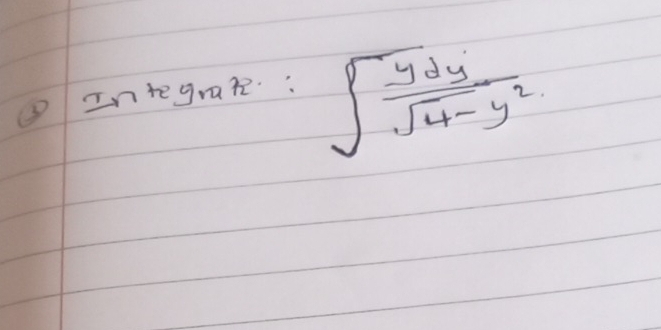 ③ Integrate : ∫ y dy / √4 - y².